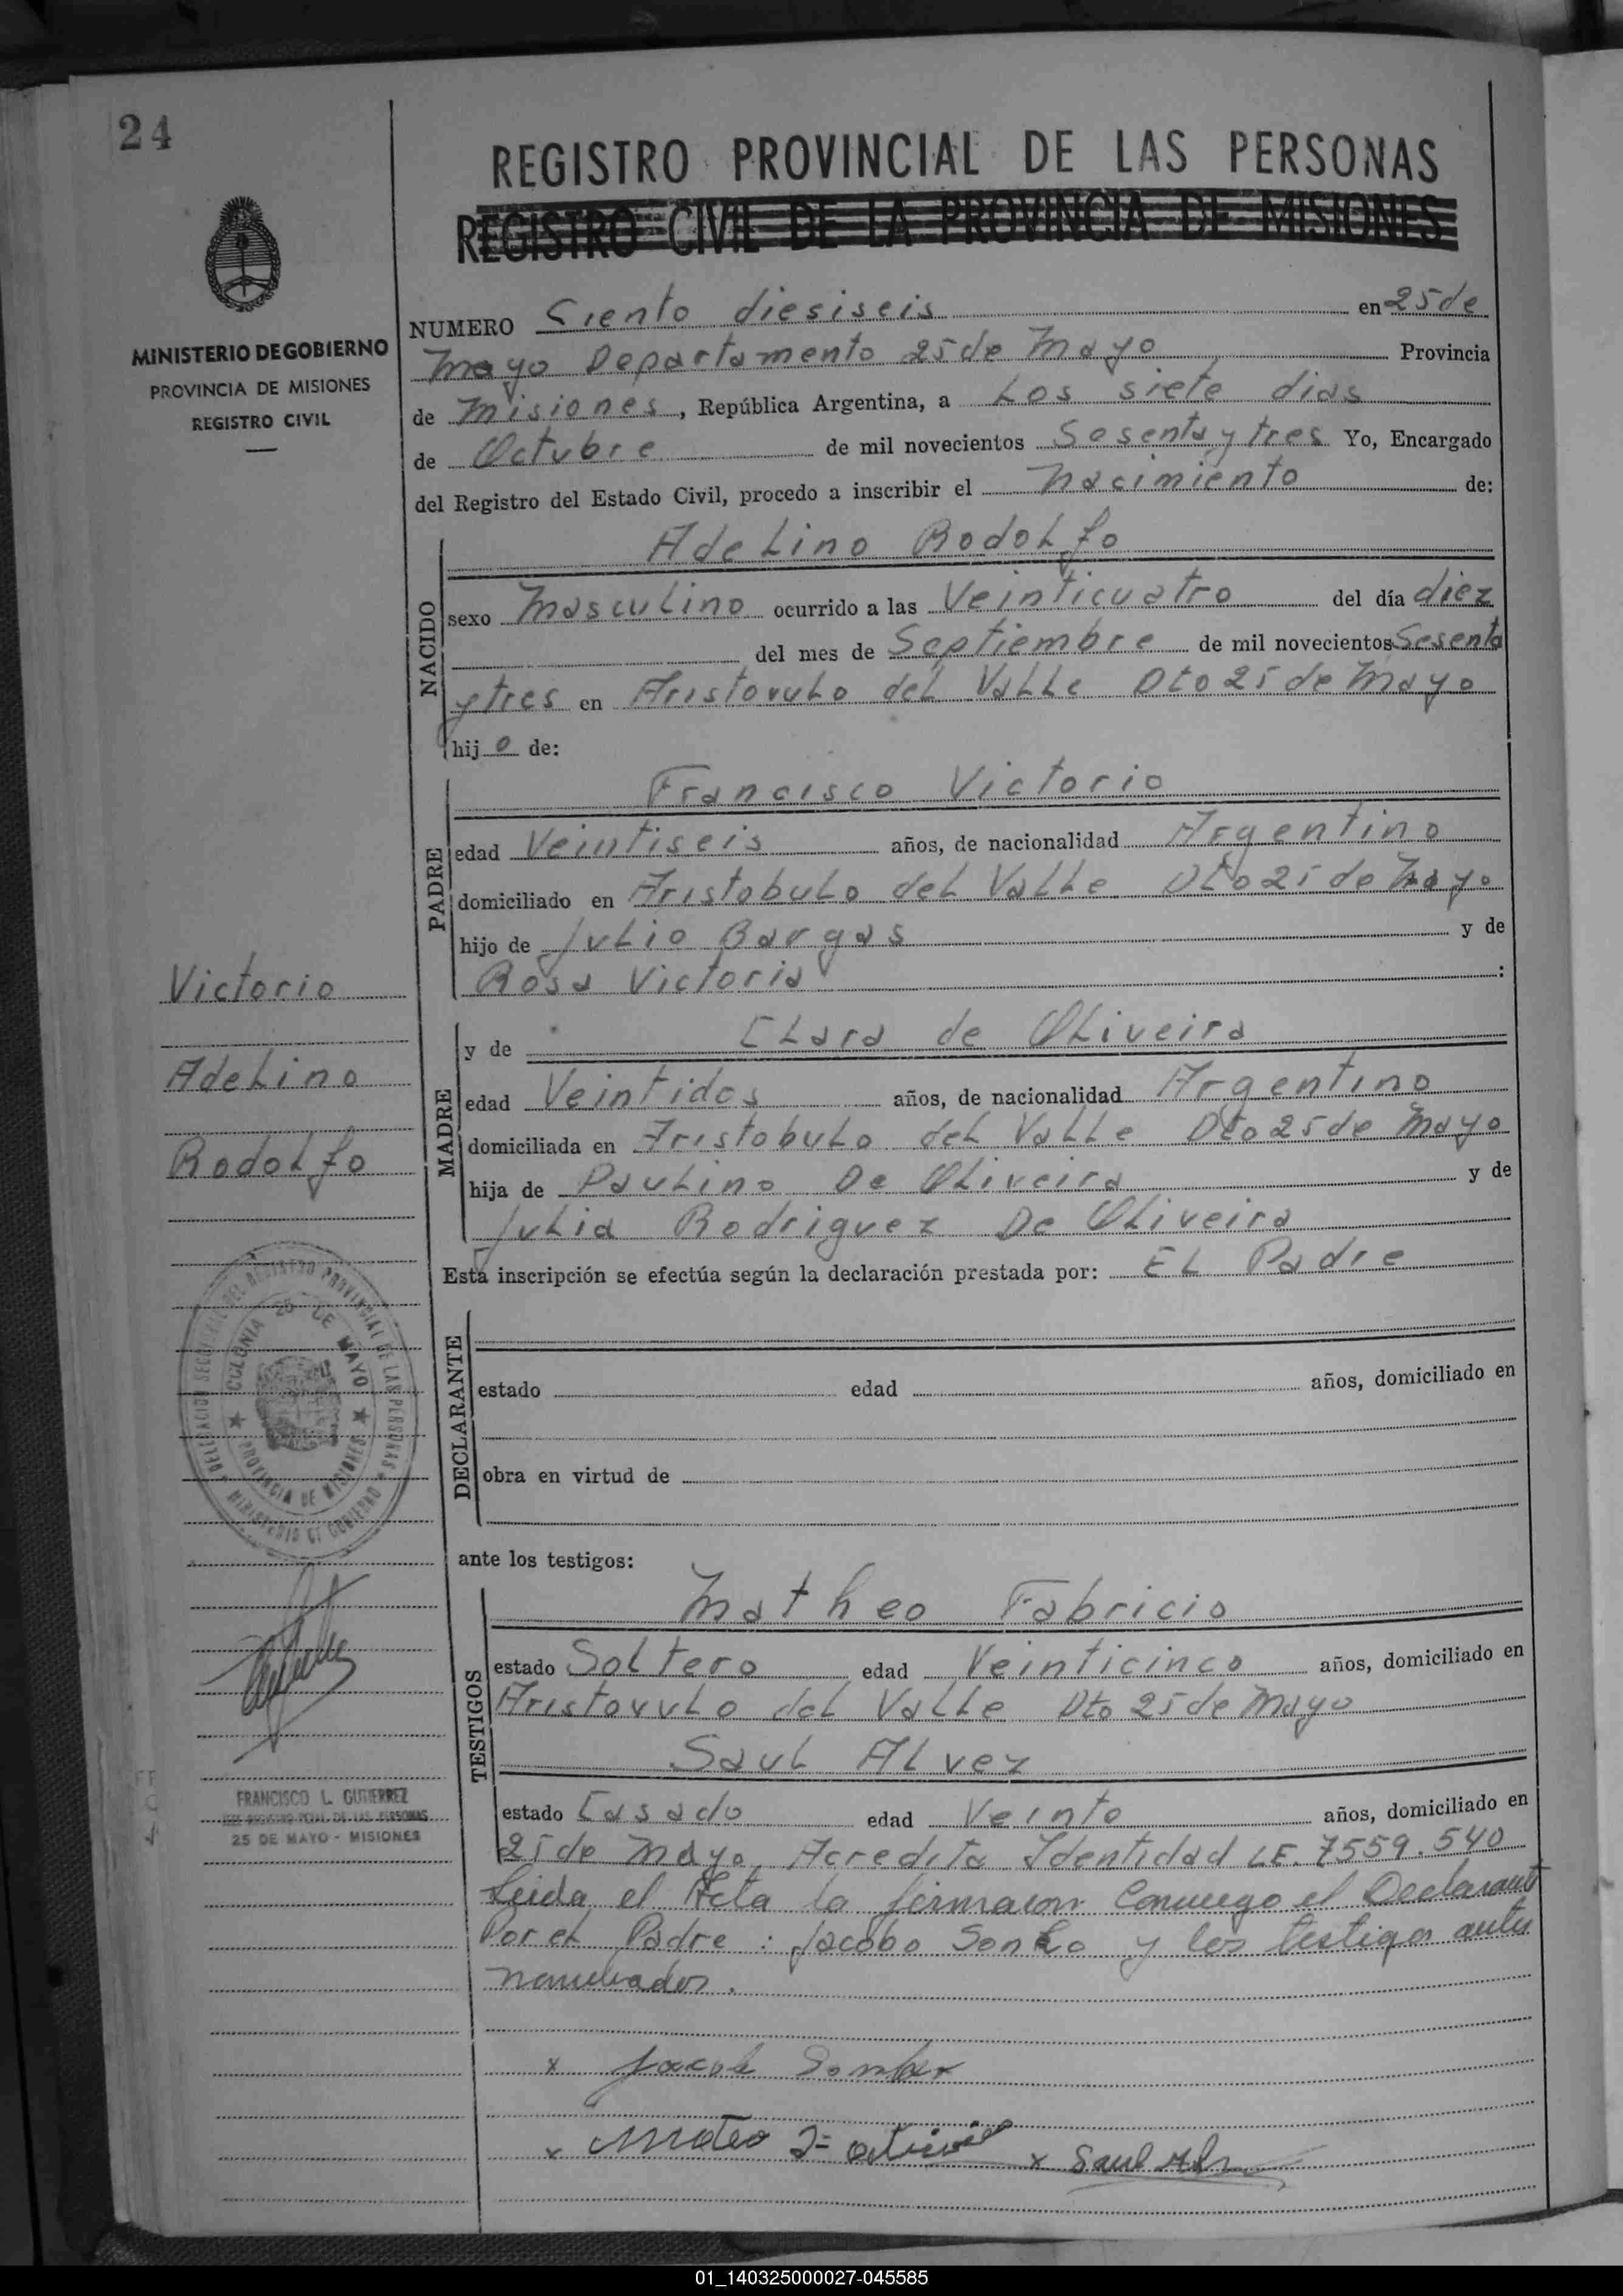 24
REGISTRO PROVINCIAL DE LAS PERSONAS
REGISTRO CIVIL DE LA PROVINCIA DE MISIONES
MINISTERIO DE GOBIERNO
PROVINCIA DE MISIONES
REGISTRO CIVIL
NUMERO Siento diesiseis en 25 de
mayo Departamento 25 de Mayo Provincia
de Misiones, República Argentina, a Los siete dias
de Octubre de mil novecientos Sesenta y tres Yo, Encargado
del Registro del Estado Civil, procedo a inscribir el nacimiento de:
NACIDO
Adelino Rodolfo
sexo Masculino ocurrido a las Veinticuatro del día diez
del mes de Septiembre de mil novecientos Sesenta
y tres en Aristovulo del Valle Dto 25 de Mayo
hijo de:
PADRE
Francisco Victorio
edad Veintiseis años, de nacionalidad Argentino
domiciliado en Aristobulo del Valle Dto 25 de Mayo
hijo de Julio Bargas y de
Rosa Victoria :
MADRE
y de Clara de Oliveira
edad Veintidos años, de nacionalidad Argentino
domiciliada en Aristobulo del Valle Dto 25 de Mayo
hija de Paulino De Oliveira y de
Julia Rodriguez De Oliveira
Esta inscripción se efectúa según la declaración prestada por: El Padre
DECLARANTE
estado edad años, domiciliado en
obra en virtud de
ante los testigos:
TESTIGOS
Matheo Fabricio
estado Soltero edad Veinticinco años, domiciliado en
Aristovulo del Valle Dto 25 de Mayo
Saul Alvez
estado Casado edad Veinte años, domiciliado en
25 de Mayo, Acredita Identidad LE. 7559.540
Leida el Acta la firmaron Conmigo el Declarant
Por el Padre : Jacobo Sonko y los testigos antes
nombrados.
x Jacob
x Mateo x Saul
Victorio
Adelino
Rodolfo
DELEGACION SECCIONAL DEL REGISTRO PROVINCIAL DE LAS PERSONAS
COLONIA 25 DE MAYO
PROVINCIA DE MISIONES
MINISTERIO DE GOBIERNO
FRANCISCO L. GUTIERREZ
JEFE REGISTRO PCIAL. DE LAS PERSONAS
25 DE MAYO - MISIONES
01_140325000027-045585